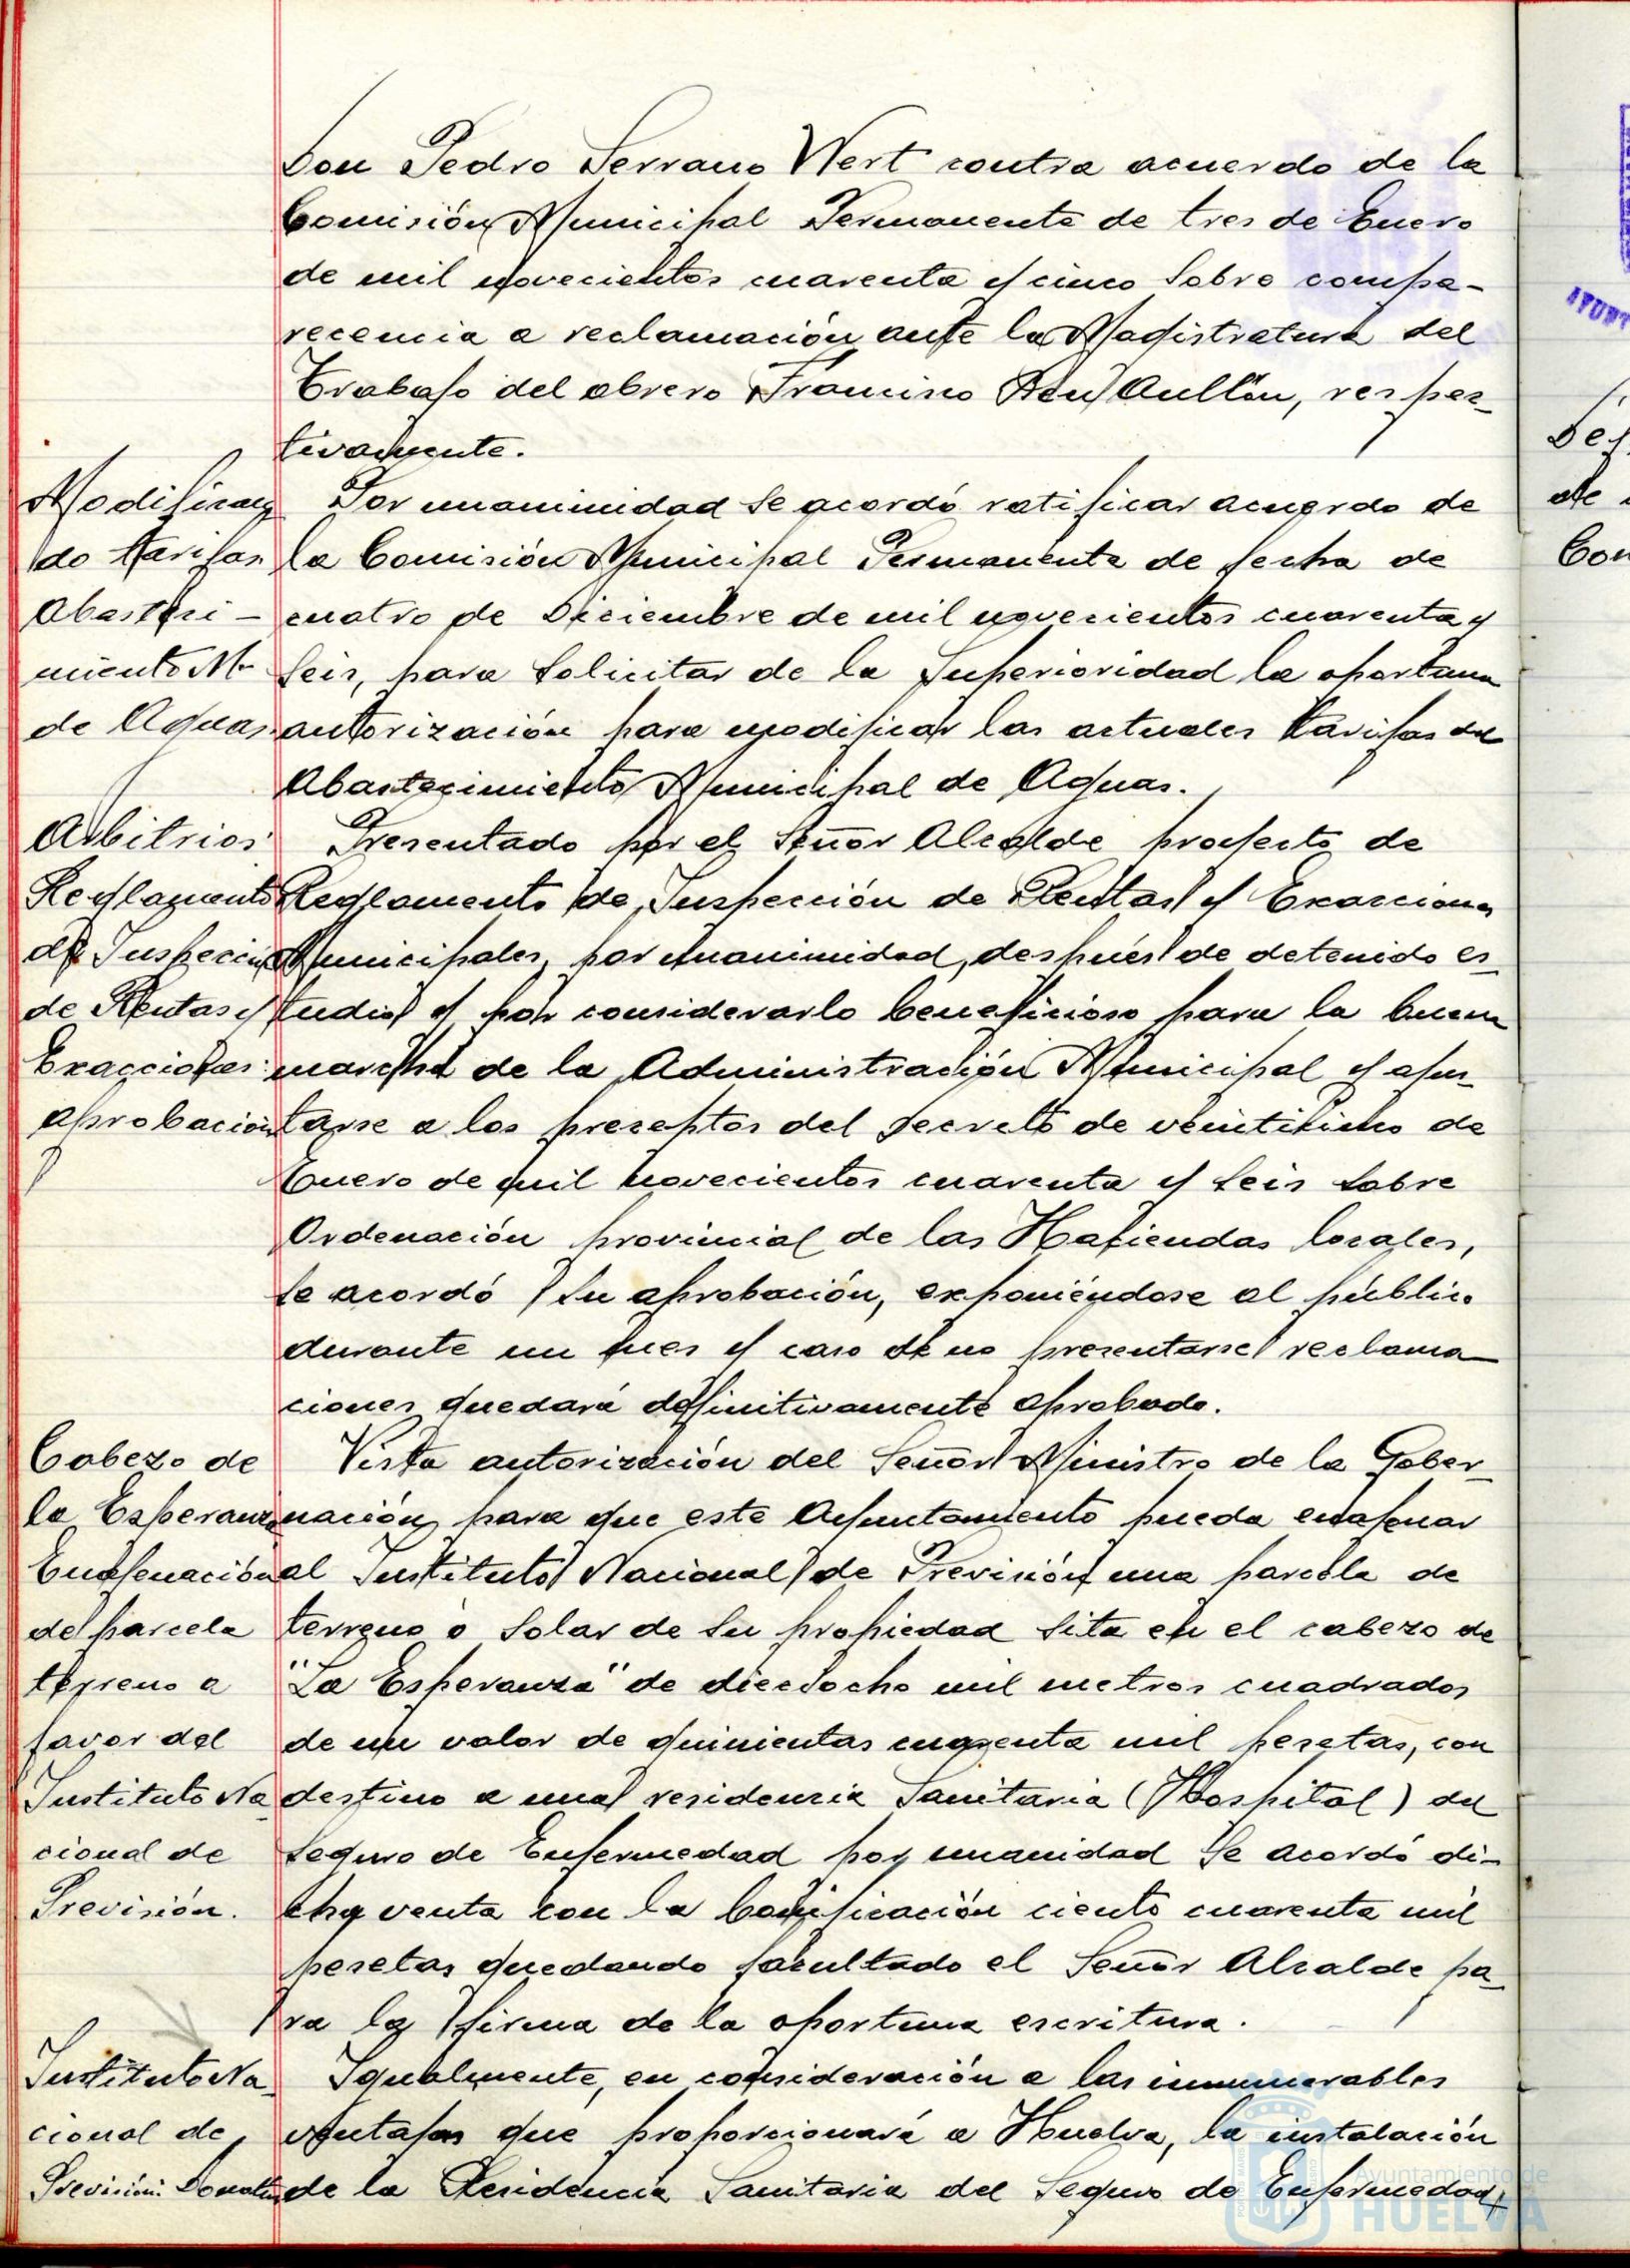 Don Pedro Serrano Wert contra acuerdo de la
Comisión Municipal Permanente de tres de Enero
de mil novecientos cuarenta y cinco sobre compa-
recencia a reclamación ante la Magistratura del
Trabajo del obrero Francisco Aullón, respec-
tivamente.
Modifican-
do tarifas
Abasteci-
miento M.
de Aguas.
Por unanimidad se acordó ratificar acuerdo de
la Comisión Municipal Permanente de fecha de
cuatro de Diciembre de mil novecientos cuarenta y
seis, para solicitar de la Superioridad la oportuna
autorización para modificar las actuales tarifas del
Abastecimiento Municipal de Aguas.
Arbitrios
Reglamento
de Inspección
de Rentas y
Exacciones
aprobación
Presentado por el Señor Alcalde proyecto de
Reglamento de Inspección de Rentas y Exacciones
Municipales, por unanimidad, después de detenido es-
tudio y por considerarlo beneficioso para la buena
marcha de la Administración Municipal y ajus-
tarse a los preceptos del Decreto de veinticinco de
Enero de mil novecientos cuarenta y seis sobre
Ordenación provincial de las Haciendas locales,
se acordó su aprobación, exponiéndose al público
durante un mes y caso de no presentarse reclama-
ciones quedará definitivamente aprobado.
Cabezo de
la Esperanza
Enajenación
de parcela
terreno a
favor del
Instituto Na-
cional de
Previsión.
Vista autorización del Señor Ministro de la Gober-
nación para que este Ayuntamiento pueda enajenar
al Instituto Nacional de Previsión una parcela de
terreno o solar de su propiedad sita en el cabezo de
"La Esperanza" de dieciocho mil metros cuadrados
de un valor de quinientas cuarenta mil pesetas, con
destino a una residencia Sanitaria (Hospital) del
Seguro de Enfermedad por unanidad se acordó di-
cha venta con la bonificación ciento cuarenta mil
pesetas quedando facultado el Señor Alcalde pa-
ra la firma de la oportuna escritura.
Instituto Na-
cional de
Previsión: Donativo
Igualmente, en consideración a las innumerables
ventajas que proporcionará a Huelva, la instalación
de la Residencia Sanitaria del Seguro de Enfermedad,
Ayuntamiento de
HUELVA